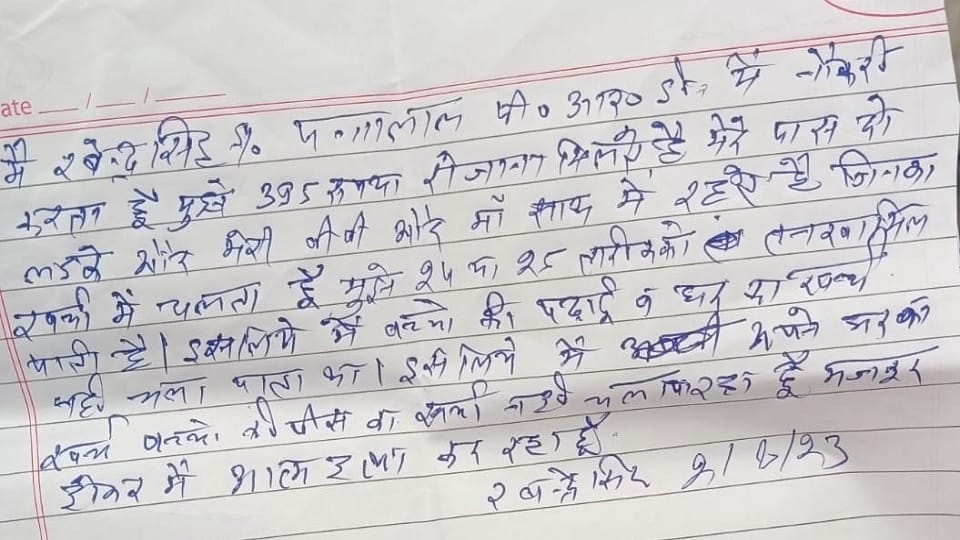 ate __/__/____
मैं रबेन्द्र सिंह S/o पन्नालाल पी० आर० डी० में नौकरी
करता हूँ मुझे 395 रुपया रोजाना मिलते है मेरे पास दो
लडके और मेरी बीबी और माँ साथ में रहते है जिनका
खर्चा में चलाता हूँ मुझे 24 या 25 तारीख को तनखा मिल
पाती है। इसलिये में बच्चो की पढाई व घर का खर्चा
नही चला पाता था। इसलिये में अपने घर का
खर्चा बच्चो की फीस का खर्चा नही चला पा रहा हूँ मजबूर
होकर में आत्म हत्या कर रहा हूँ
रबेन्द्र सिंह 2/6/23